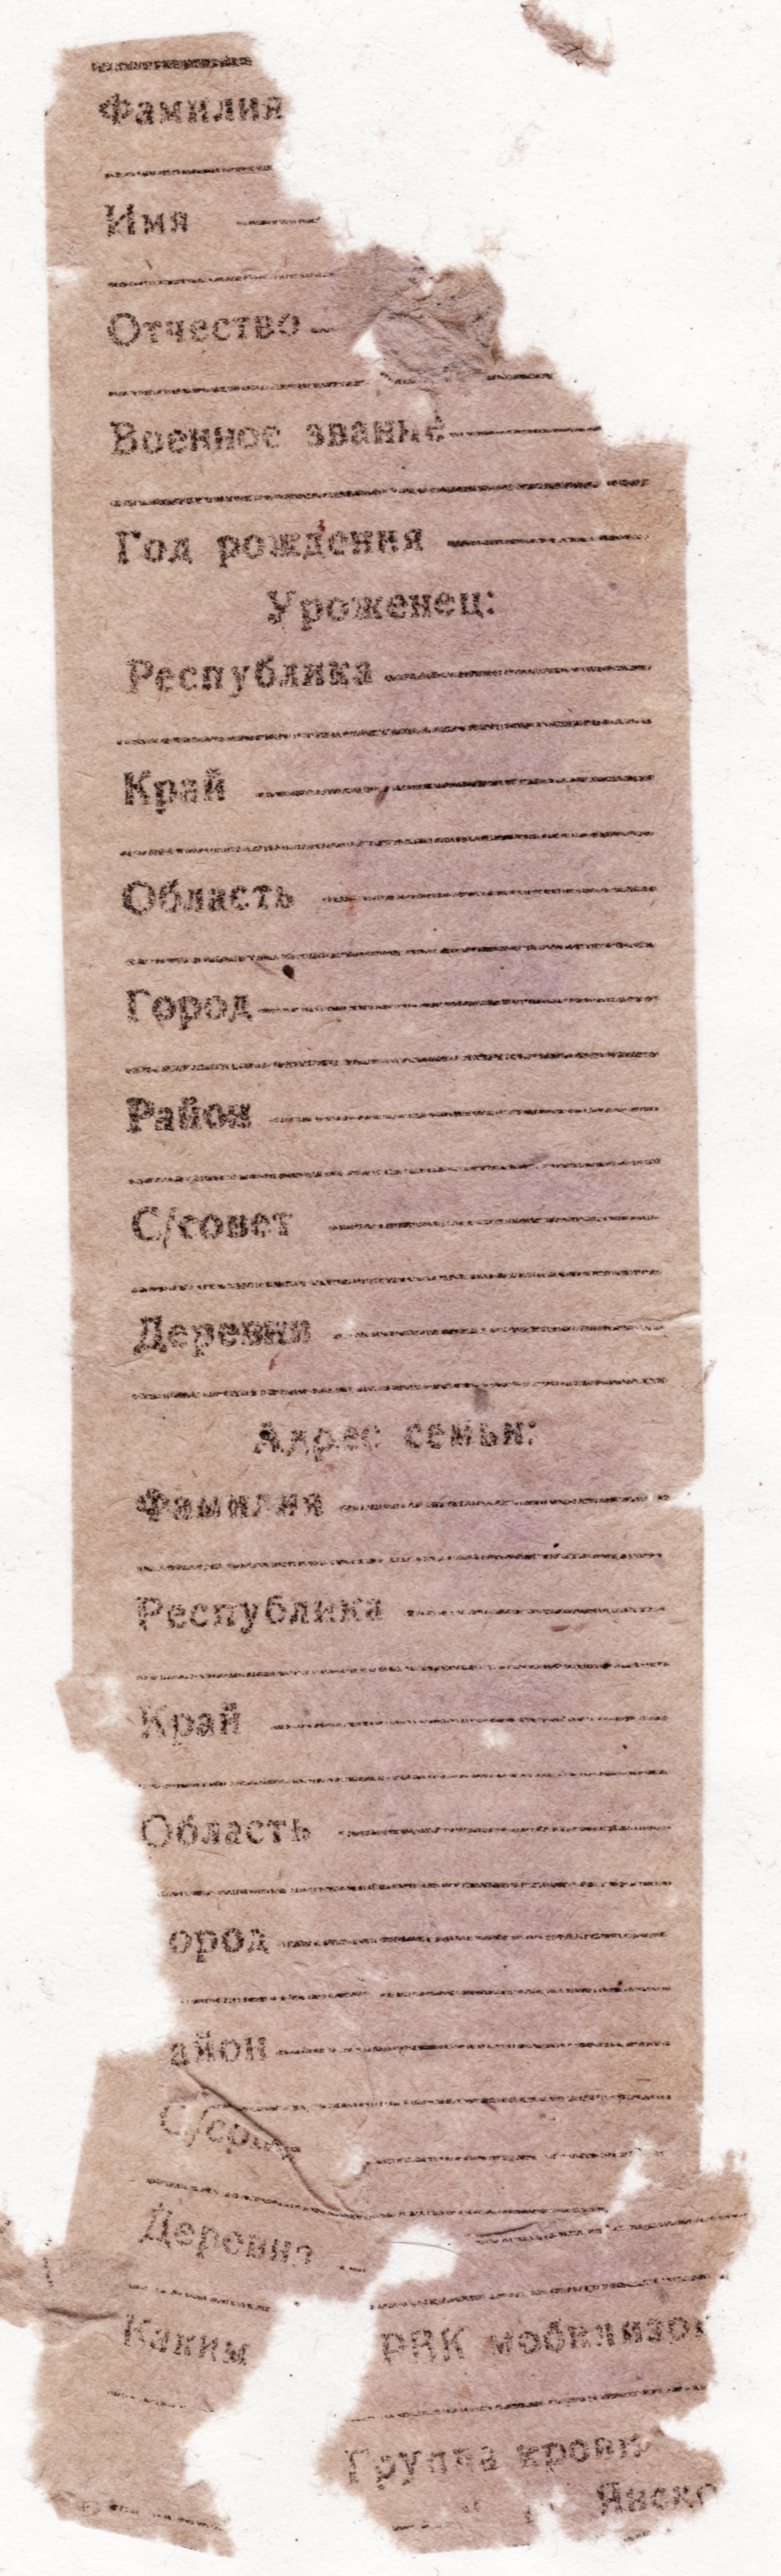 Фамилия
Имя
Отчество
Военное звание
Год рождения
Уроженец:
Республика
Край
Область
Город
Район
С/совет
Деревня
Адрес семьи:
Фамилия
Республика
Край
Область
ород
айон
С/совет
Деревня
Каким РВК мобилизов
Группа крови
Янско